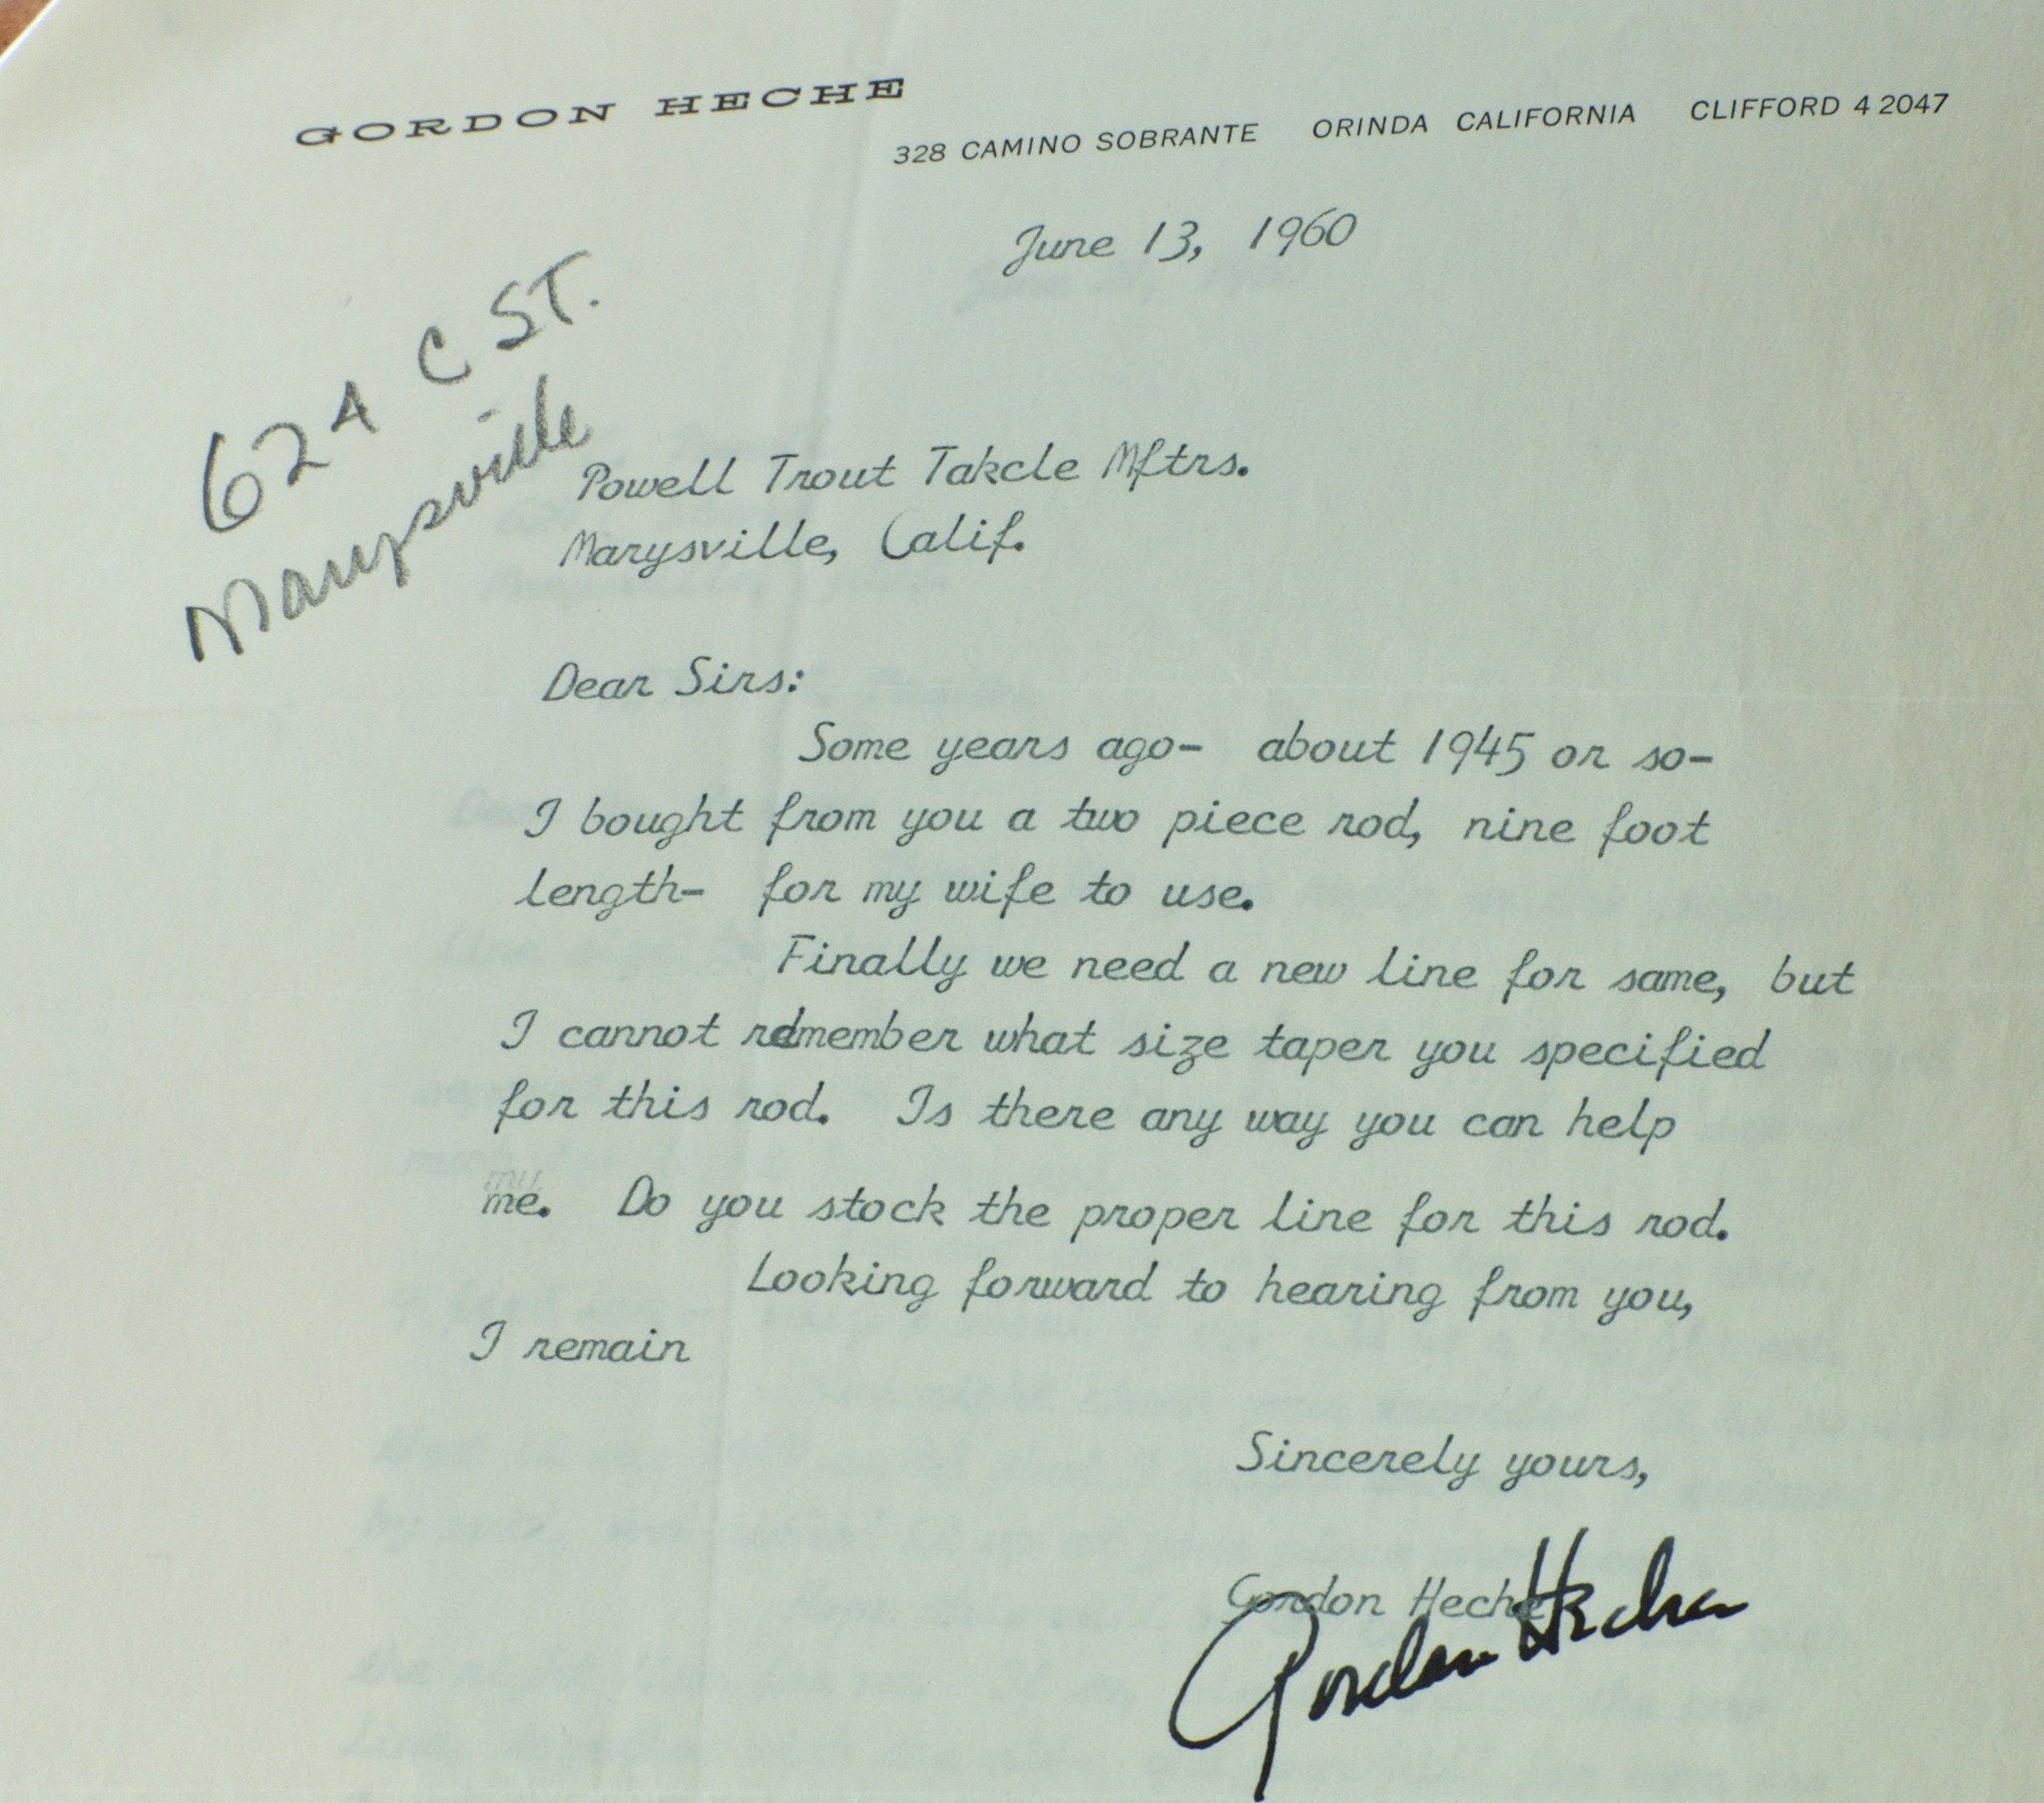 GORDON HECHE
328 CAMINO SOBRANTE ORINDA CALIFORNIA CLIFFORD 4 2047
June 13, 1960
624 C ST.
Marysville
Powell Trout Takcle Mftrs.
Marysville, Calif.
Dear Sirs:
Some years ago- about 1945 or so-
I bought from you a two piece rod, nine foot
length- for my wife to use.
Finally we need a new line for same, but
I cannot remember what size taper you specified
for this rod. Is there any way you can help
me. Do you stock the proper line for this rod.
Looking forward to hearing from you,
I remain
Sincerely yours,
Gordon Heche
Gordon Heche